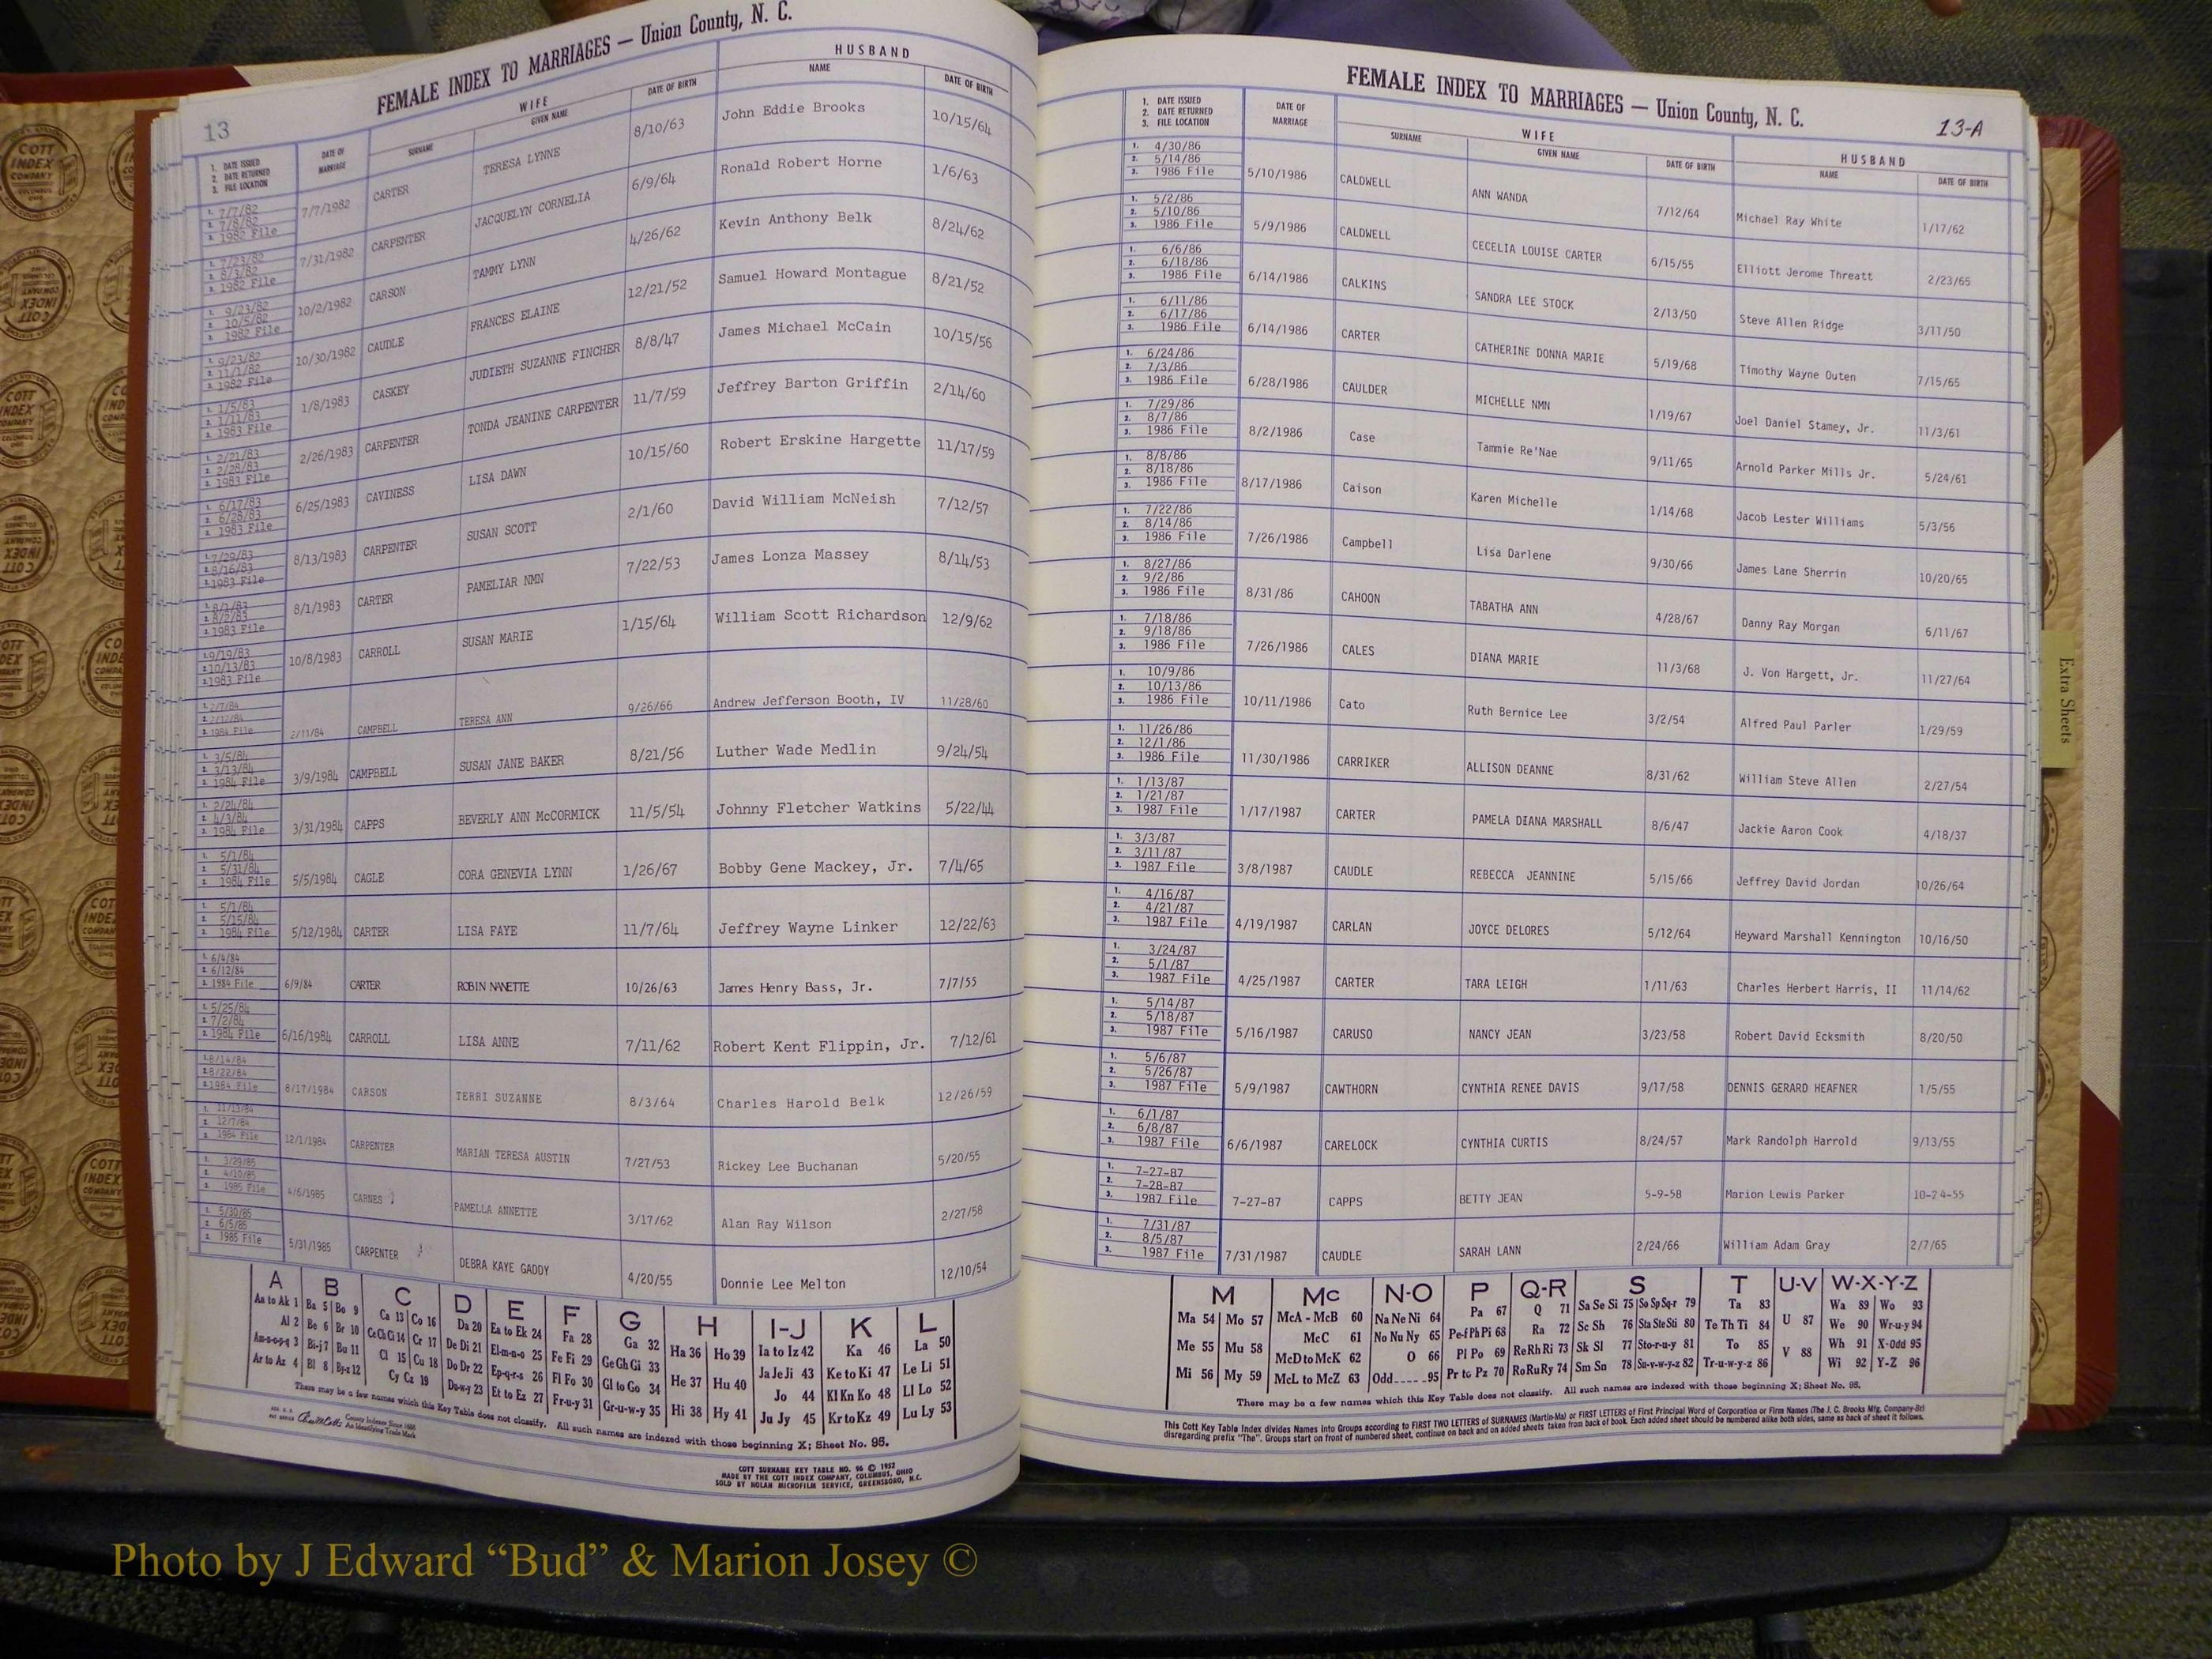 FEMALE INDEX TO MARRIAGES — Union County, N. C.
13
1. DATE ISSUED
2. DATE RETURNED
3. FILE LOCATION
DATE OF MARRIAGE
WIFE
SURNAME
GIVEN NAME
DATE OF BIRTH
HUSBAND
NAME
DATE OF BIRTH
1. 7/7/82
2. 7/8/82
3. 1982 File
7/7/1982 CARTER TERESA LYNNE 8/10/63 John Eddie Brooks 10/15/64
1. 7/23/82
2. 8/3/82
3. 1982 File
7/31/1982 CARPENTER JACQUELYN CORNELIA 6/9/64 Ronald Robert Horne 1/6/63
1. 9/23/82
2. 10/5/82
3. 1982 File
10/2/1982 CARSON TAMMY LYNN 4/26/62 Kevin Anthony Belk 8/24/62
1. 9/23/82
2. 11/1/82
3. 1982 File
10/30/1982 CAUDLE FRANCES ELAINE 12/21/52 Samuel Howard Montague 8/21/52
1. 1/5/83
2. 1/11/83
3. 1983 File
1/8/1983 CASKEY JUDIETH SUZANNE FINCHER 8/8/47 James Michael McCain 10/15/56
1. 2/21/83
2. 2/28/83
3. 1983 File
2/26/1983 CARPENTER TONDA JEANINE CARPENTER 11/7/59 Jeffrey Barton Griffin 2/14/60
1. 6/17/83
2. 6/28/83
3. 1983 File
6/25/1983 CAVINESS LISA DAWN 10/15/60 Robert Erskine Hargette 11/17/59
1. 7/29/83
2. 8/16/83
3. 1983 File
8/13/1983 CARPENTER SUSAN SCOTT 2/1/60 David William McNeish 7/12/57
1. 8/1/83
2. 8/2/83
3. 1983 File
8/1/1983 CARTER PAMELIAR NMN 7/22/53 James Lonza Massey 8/14/53
1. 9/19/83
2. 10/13/83
3. 1983 File
10/8/1983 CARROLL SUSAN MARIE 1/15/64 William Scott Richardson 12/9/62
1. 2/7/84
2. 2/12/84
3. 1984 File
2/11/84 CAMPBELL TERESA ANN 9/26/66 Andrew Jefferson Booth, IV 11/28/60
1. 3/5/84
2. 3/13/84
3. 1984 File
3/9/1984 CAMPBELL SUSAN JANE BAKER 8/21/56 Luther Wade Medlin 9/24/54
1. 2/24/84
2. 4/3/84
3. 1984 File
3/31/1984 CAPPS BEVERLY ANN McCORMICK 11/5/54 Johnny Fletcher Watkins 5/22/44
1. 5/1/84
2. 5/31/84
3. 1984 File
5/5/1984 CAGLE CORA GENEVIA LYNN 1/26/67 Bobby Gene Mackey, Jr. 7/4/65
1. 5/1/84
2. 5/15/84
3. 1984 File
5/12/1984 CARTER LISA FAYE 11/7/64 Jeffrey Wayne Linker 12/22/63
1. 6/4/84
2. 6/12/84
3. 1984 File
6/9/84 CARTER ROBIN NANETTE 10/26/63 James Henry Bass, Jr. 7/7/55
1. 5/25/84
2. 7/2/84
3. 1984 File
6/16/1984 CARROLL LISA ANNE 7/11/62 Robert Kent Flippin, Jr. 7/12/61
1. 8/14/84
2. 8/22/84
3. 1984 File
8/17/1984 CARSON TERRI SUZANNE 8/3/64 Charles Harold Belk 12/26/59
1. 11/13/84
2. 12/7/84
3. 1984 File
12/1/1984 CARPENTER MARIAN TERESA AUSTIN 7/27/53 Rickey Lee Buchanan 5/20/55
1. 3/29/85
2. 4/10/85
3. 1985 File
4/6/1985 CARNES PAMELLA ANNETTE 3/17/62 Alan Ray Wilson 2/27/58
1. 5/30/85
2. 6/5/85
3. 1985 File
5/31/1985 CARPENTER DEBRA KAYE GADDY 4/20/55 Donnie Lee Melton 12/10/54
A B C D E F G H I-J K L
Aa to Ak 1 Ba 5 Bo 9 Ca 13 Co 16 Da 20 Ea to Ek 24 Fa 28 Ga 32 Ha 36 Ho 39 Ia to Iz 42 Ka 46 La 50
Al 2 Be 6 Br 10 Ce Ch Ci 14 Cr 17 De Di 21 El-m-n-o 25 Fe Fi 29 Ge Gh Gi 33 He 37 Hu 40 Ja Je Ji 43 Ke to Ki 47 Le Li 51
Am-n-o-p-q 3 Bi-j 7 Bu 11 Cl 15 Cu 18 Do Dr 22 Ep-q-r-s 26 Fl Fo 30 Gl to Go 34 Hi 38 Hy 41 Jo 44 Kl Kn Ko 48 Ll Lo 52
Ar to Az 4 Bl 8 By-z 12 Cy Cz 19 Du-w-y 23 Et to Ez 27 Fr-u-y 31 Gr-u-w-y 35 Ju Jy 45 Kr to Kz 49 Lu Ly 53
There may be a few names which this Key Table does not classify. All such names are indexed with those beginning X; Sheet No. 95.
County Indexes Since 1888
An Identifying Trade Mark
COTT SURNAME KEY TABLE NO. 96 © 1952
MADE BY THE COTT INDEX COMPANY, COLUMBUS, OHIO
SOLD BY NOLAN MICROFILM SERVICE, GREENSBORO, N.C.
FEMALE INDEX TO MARRIAGES — Union County, N. C.
13-A
1. DATE ISSUED
2. DATE RETURNED
3. FILE LOCATION
DATE OF MARRIAGE
WIFE
SURNAME
GIVEN NAME
DATE OF BIRTH
HUSBAND
NAME
DATE OF BIRTH
1. 4/30/86
2. 5/14/86
3. 1986 File
5/10/1986 CALDWELL ANN WANDA 7/12/64 Michael Ray White 1/17/62
1. 5/2/86
2. 5/10/86
3. 1986 File
5/9/1986 CALDWELL CECELIA LOUISE CARTER 6/15/55 Elliott Jerome Threatt 2/23/65
1. 6/6/86
2. 6/18/86
3. 1986 File
6/14/1986 CALKINS SANDRA LEE STOCK 2/13/50 Steve Allen Ridge 3/11/50
1. 6/11/86
2. 6/17/86
3. 1986 File
6/14/1986 CARTER CATHERINE DONNA MARIE 5/19/68 Timothy Wayne Outen 7/15/65
1. 6/24/86
2. 7/3/86
3. 1986 File
6/28/1986 CAULDER MICHELLE NMN 1/19/67 Joel Daniel Stamey, Jr. 11/3/61
1. 7/29/86
2. 8/7/86
3. 1986 File
8/2/1986 Case Tammie Re'Nae 9/11/65 Arnold Parker Mills Jr. 5/24/61
1. 8/8/86
2. 8/18/86
3. 1986 File
8/17/1986 Caison Karen Michelle 1/14/68 Jacob Lester Williams 5/3/56
1. 7/22/86
2. 8/14/86
3. 1986 File
7/26/1986 Campbell Lisa Darlene 9/30/66 James Lane Sherrin 10/20/65
1. 8/27/86
2. 9/2/86
3. 1986 File
8/31/86 CAHOON TABATHA ANN 4/28/67 Danny Ray Morgan 6/11/67
1. 7/18/86
2. 9/18/86
3. 1986 File
7/26/1986 CALES DIANA MARIE 11/3/68 J. Von Hargett, Jr. 11/27/64
1. 10/9/86
2. 10/13/86
3. 1986 File
10/11/1986 Cato Ruth Bernice Lee 3/2/54 Alfred Paul Parler 1/29/59
1. 11/26/86
2. 12/1/86
3. 1986 File
11/30/1986 CARRIKER ALLISON DEANNE 8/31/62 William Steve Allen 2/27/54
1. 1/13/87
2. 1/21/87
3. 1987 File
1/17/1987 CARTER PAMELA DIANA MARSHALL 8/6/47 Jackie Aaron Cook 4/18/37
1. 3/3/87
2. 3/11/87
3. 1987 File
3/8/1987 CAUDLE REBECCA JEANNINE 5/15/66 Jeffrey David Jordan 10/26/64
1. 4/16/87
2. 4/21/87
3. 1987 File
4/19/1987 CARLAN JOYCE DELORES 5/12/64 Heyward Marshall Kennington 10/16/50
1. 3/24/87
2. 5/1/87
3. 1987 File
4/25/1987 CARTER TARA LEIGH 1/11/63 Charles Herbert Harris, II 11/14/62
1. 5/14/87
2. 5/18/87
3. 1987 File
5/16/1987 CARUSO NANCY JEAN 3/23/58 Robert David Ecksmith 8/20/50
1. 5/6/87
2. 5/26/87
3. 1987 File
5/9/1987 CAWTHORN CYNTHIA RENEE DAVIS 9/17/58 DENNIS GERARD HEAFNER 1/5/55
1. 6/1/87
2. 6/8/87
3. 1987 File
6/6/1987 CARELOCK CYNTHIA CURTIS 8/24/57 Mark Randolph Harrold 9/13/55
1. 7-27-87
2. 7-28-87
3. 1987 File
7-27-87 CAPPS BETTY JEAN 5-9-58 Marion Lewis Parker 10-24-55
1. 7/31/87
2. 8/5/87
3. 1987 File
7/31/1987 CAUDLE SARAH LANN 2/24/66 William Adam Gray 2/7/65
M Mc N-O P Q-R S T U-V W-X-Y-Z
Ma 54 Mo 57 McA - McB 60 Na Ne Ni 64 Pa 67 Q 71 Sa Se Si 75 So Sp Sq-r 79 Ta 83 U 87 Wa 89 Wo 93
Me 55 Mu 58 McC 61 No Nu Ny 65 Pe-f Ph Pi 68 Ra 72 Sc Sh 76 Sta Ste Sti 80 Te Th Ti 84 V 88 We 90 Wr-u-y 94
Mi 56 My 59 McD to McK 62 O 66 Pl Po 69 Re Rh Ri 73 Sk Sl 77 Sto-r-u-y 81 To 85 Wh 91 X-Odd 95
McL to McZ 63 Odd-----95 Pr to Pz 70 Ro Ru Ry 74 Sm Sn 78 Su-v-w-y-z 82 Tr-u-w-y-z 86 Wi 92 Y-Z 96
There may be a few names which this Key Table does not classify. All such names are indexed with those beginning X; Sheet No. 95.
This Cott Key Table Index divides Names into Groups according to FIRST TWO LETTERS of SURNAMES (Martin-Ma) or FIRST LETTERS of First Principal Word of Corporation or Firm Names (The J. C. Brooks Mfg. Company-Br)
disregarding prefix "The". Groups start on front of numbered sheet, continue on back and on added sheets taken from back of book. Each added sheet should be numbered alike both sides, same as back of sheet it follows.
Extra Sheets
COTT
INDEX
COMPANY
Photo by J Edward “Bud” & Marion Josey ©